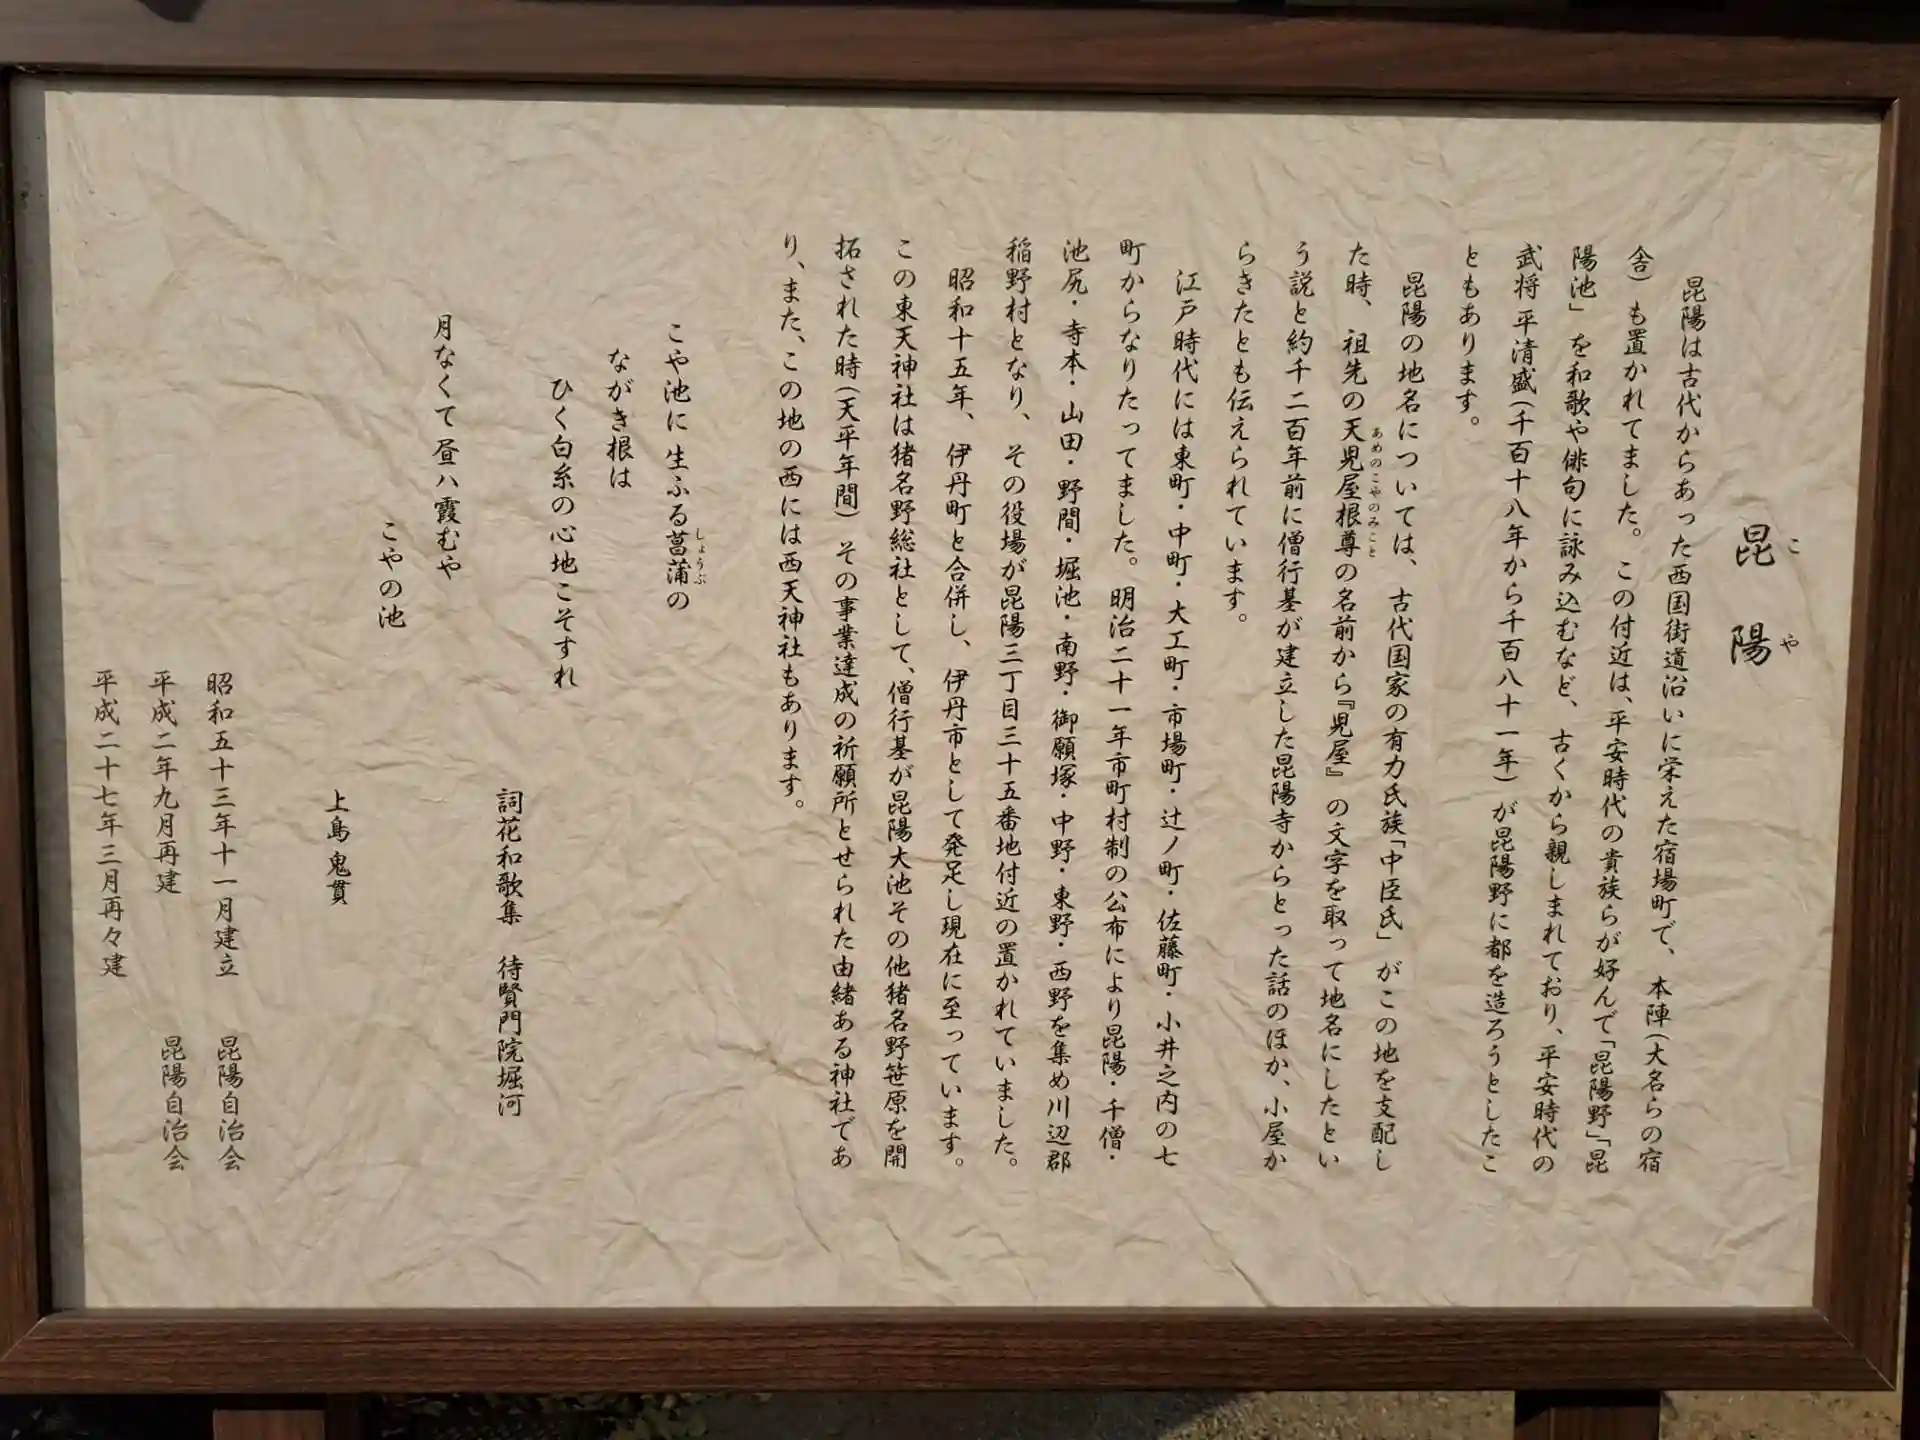 昆陽
こや
昆陽は古代からあった西国街道沿いに栄えた宿場町で、本陣(大名らの宿
舎)も置かれてました。この付近は、平安時代の貴族らが好んで「昆陽野」「昆
陽池」を和歌や俳句に詠み込むなど、古くから親しまれており、平安時代の
武将平清盛(千百十八年から千百八十一年)が昆陽野に都を造ろうとしたこ
ともあります。
昆陽の地名については、古代国家の有力氏族「中臣氏」がこの地を支配し
た時、祖先の天児屋根尊の名前から『児屋』の文字を取って地名にしたとい
あめのこやのみこと
う説と約千二百年前に僧行基が建立した昆陽寺からとった話のほか、小屋か
らきたとも伝えられています。
江戸時代には東町・中町・大工町・市場町・辻ノ町・佐藤町・小井之内の七
町からなりたってました。明治二十一年市町村制の公布により昆陽・千僧・
池尻・寺本・山田・野間・堀池・南野・御願塚・中野・東野・西野を集め川辺郡
稲野村となり、その役場が昆陽三丁目三十五番地付近の置かれていました。
昭和十五年、伊丹町と合併し、伊丹市として発足し現在に至っています。
この東天神社は猪名野総社として、僧行基が昆陽大池その他猪名野笹原を開
拓された時(天平年間)その事業達成の祈願所とせられた由緒ある神社であ
り、また、この地の西には西天神社もあります。
こや池に生ふる菖蒲の
しょうぶ
ながき根は
ひく白糸の心地こそすれ
詞花和歌集 待賢門院堀河
月なくて昼ハ霞むや
こやの池
上島鬼貫
昭和五十三年十一月建立 昆陽自治会
平成二年九月再建 昆陽自治会
平成二十七年三月再々建